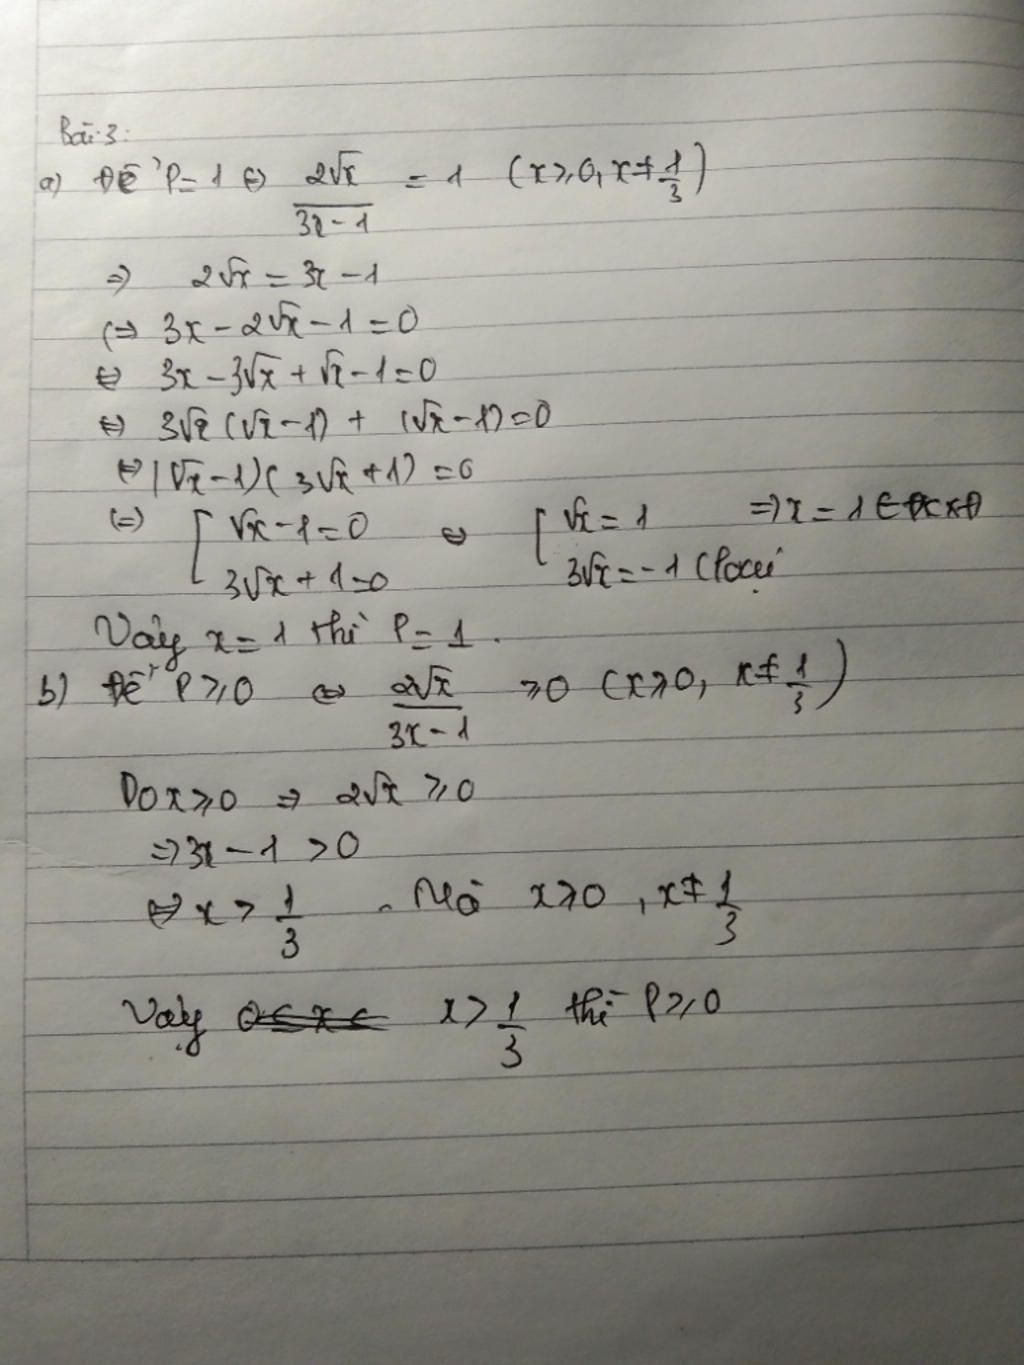 Bài 3:
a) Để P = 1 ⇔ 2√x / (3x - 1) = 1 (x ≥ 0, x ≠ 1/3)
⇒ 2√x = 3x - 1
⇔ 3x - 2√x - 1 = 0
⇔ 3x - 3√x + √x - 1 = 0
⇔ 3√x (√x - 1) + (√x - 1) = 0
⇔ (√x - 1)(3√x + 1) = 0
⇔ [ √x - 1 = 0 ⇔ [ √x = 1 ⇒ x = 1 ∈ ĐKXĐ
3√x + 1 = 0 3√x = -1 (loại
Vậy x = 1 thì P = 1.
b) Để P ≥ 0 ⇔ 2√x / (3x - 1) ≥ 0 (x ≥ 0, x ≠ 1/3)
Do x ≥ 0 ⇒ 2√x ≥ 0
⇒ 3x - 1 > 0
⇔ x > 1/3 . Mà x ≥ 0, x ≠ 1/3
Vậy x > 1/3 thì P ≥ 0